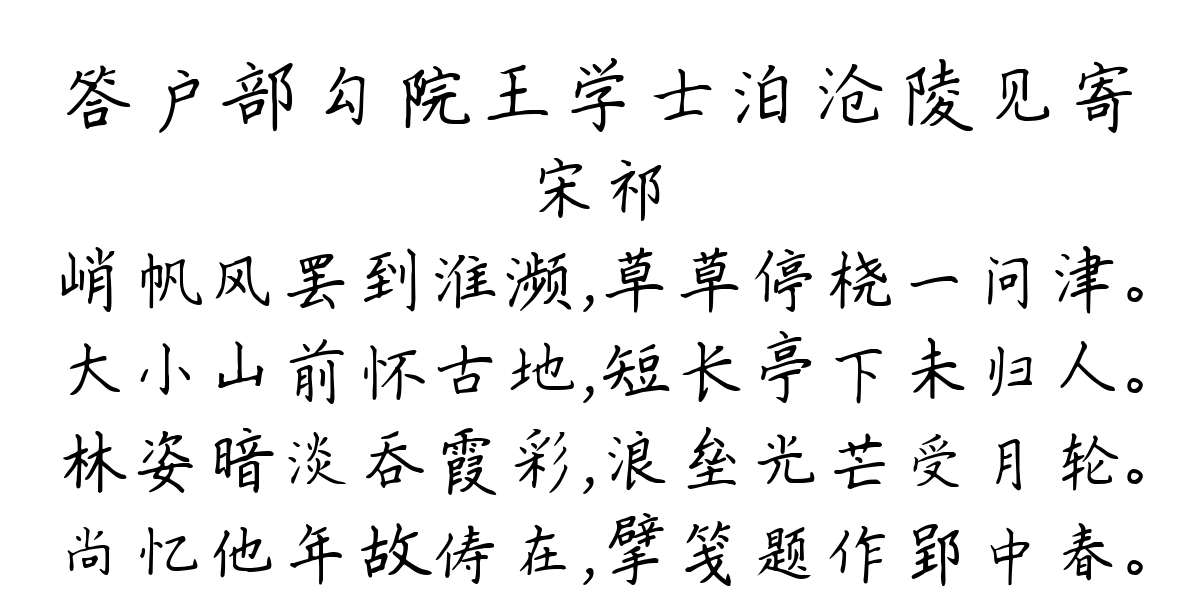 答户部勾院王学士泊沧陵见寄
宋祁
峭帆风罢到淮濒,草草停桡一问津。
大小山前怀古地,短长亭下未归人。
林姿暗淡吞霞彩,浪垒光芒受月轮。
尚忆他年故俦在,擘笺题作郢中春。